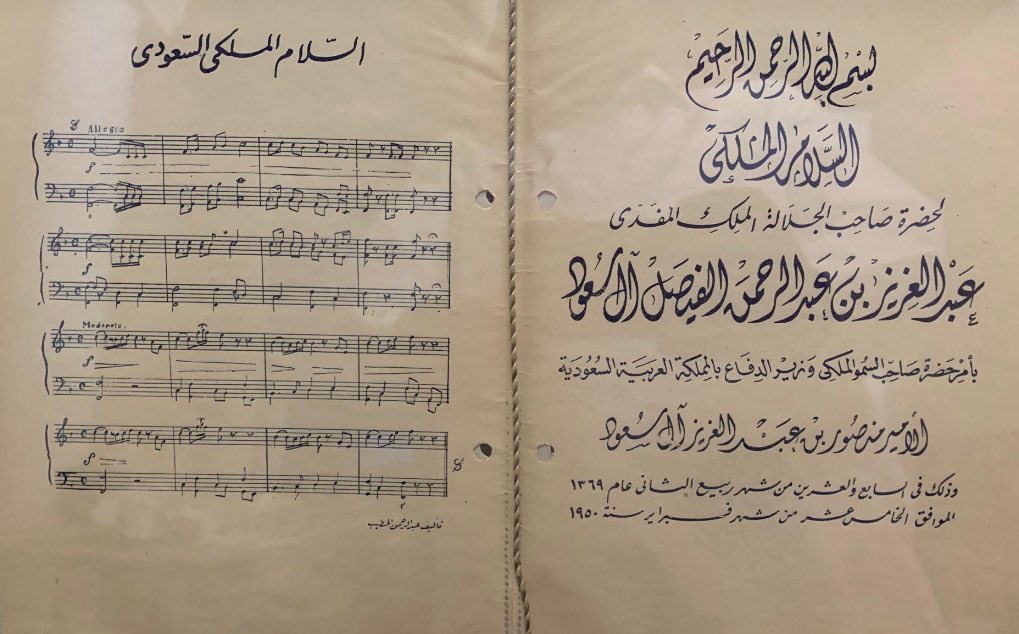 بسم الله الرحمن الرحيم
السلام الملكي
لحضرة صاحب الجلالة الملك المفدى
عبد العزيز بن عبد الرحمن الفيصل آل سعود
بأمر حضرة صاحب السمو الملكي وزير الدفاع بالمملكة العربية السعودية
الأمير منصور بن عبد العزيز آل سعود
وذلك في السابع والعشرين من شهر ربيع الثاني عام ١٣٦٩
الموافق الخامس عشر من شهر فبراير سنة ١٩٥٠
السّلام الملكى السّعودى
Allegro
f
f
Moderato.
f
f
تأليف عبد الرحمن الخطيب